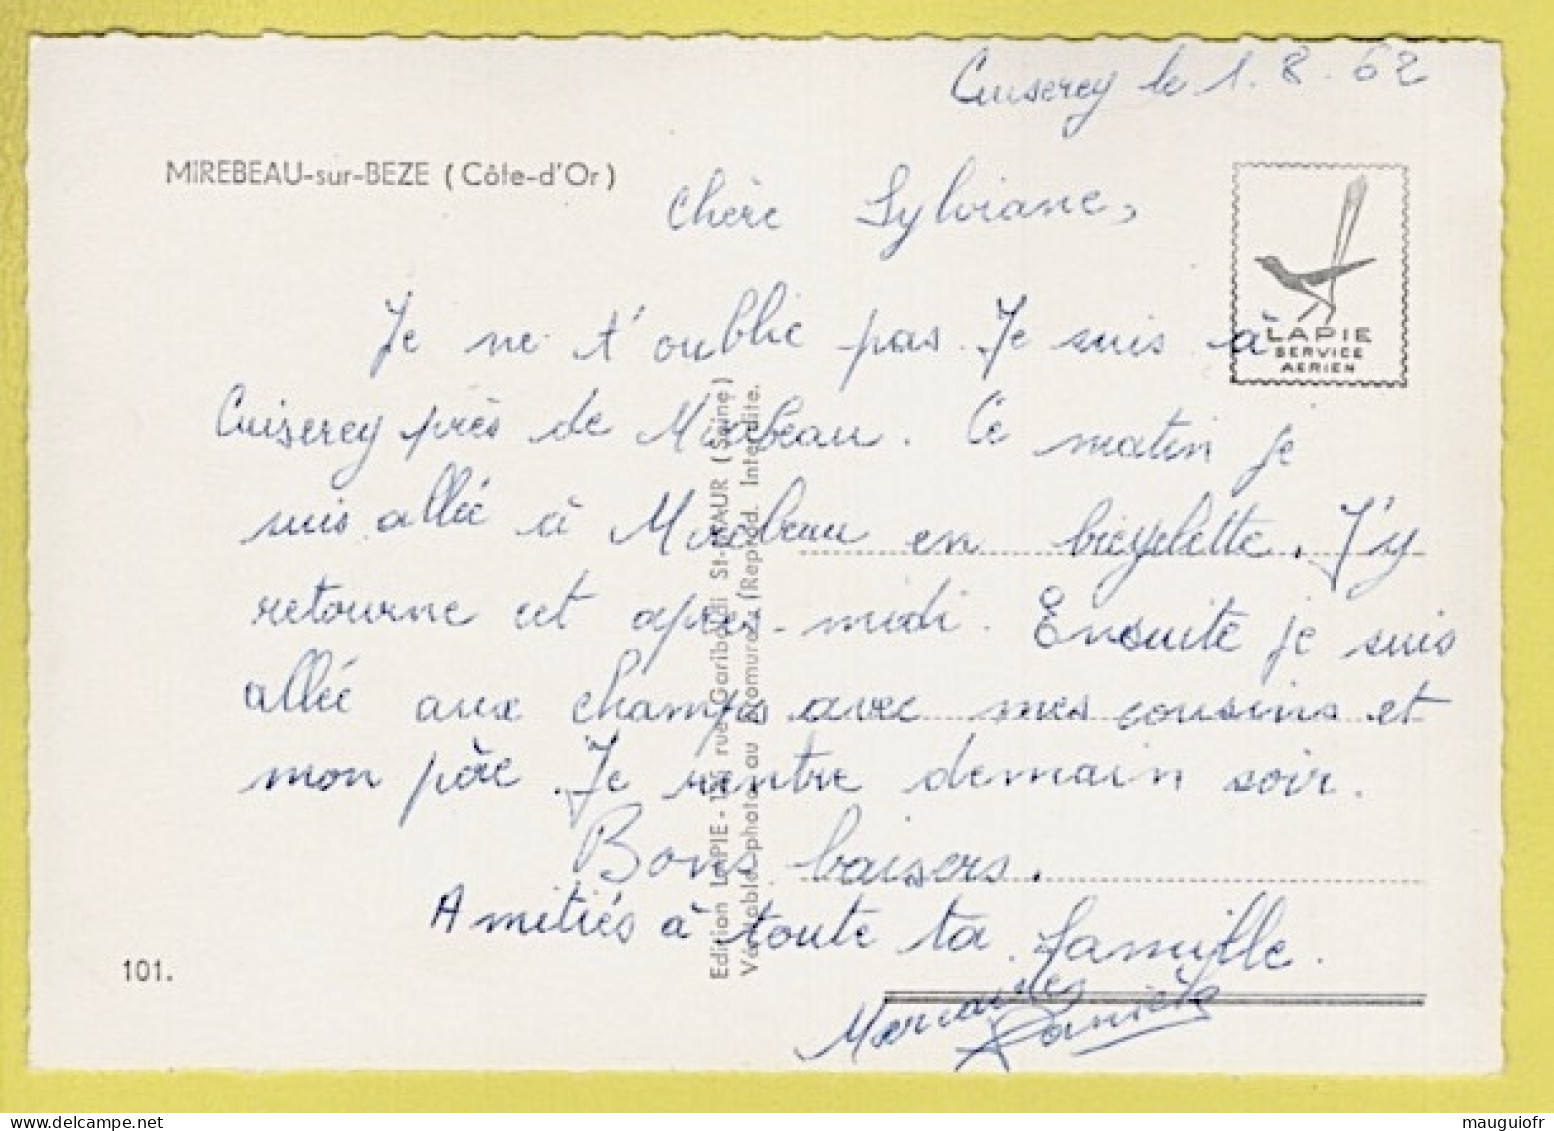 Cuiserey le 1. 8. 62
MIREBEAU-sur-BEZE ( Côte-d'Or )
Chère Sylviane,
LAPIE
SERVICE
AERIEN
Je ne t'oublie pas. Je suis à
Cuiserey près de Mirebeau. Ce matin je
suis allée à Mirebeau en bicyclette. J'y
retourne cet après-midi. Ensuite je suis
allée aux champs avec mes cousins et
mon père. Je rentre demain soir.
Bons baisers.
Amitiés à toute ta famille.
101.
Edition LAPIE - rue Garibaldi St-MAUR (Seine)
Véritable photo au Bromure. (Reprod. Interdite.
mauguiofr